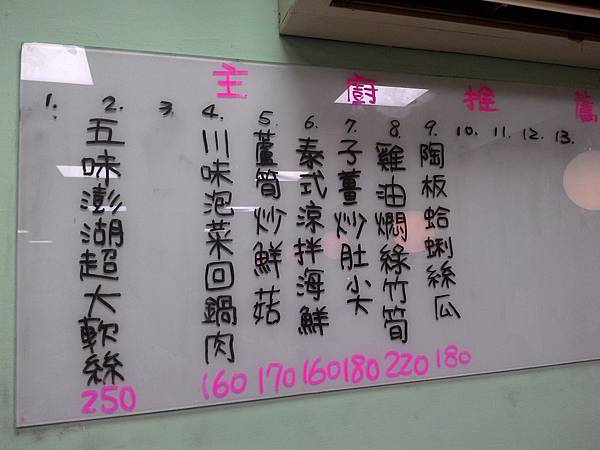 主廚推薦
1.
2. 五味澎湖超大軟絲 250
3.
4. 川味泡菜回鍋肉 160
5. 蘆筍炒鮮菇 170
6. 泰式涼拌海鮮 160
7. 子薑炒肚尖 180
8. 雞油燜綠竹筍 220
9. 陶板蛤蜊絲瓜 180
10.
11.
12.
13.